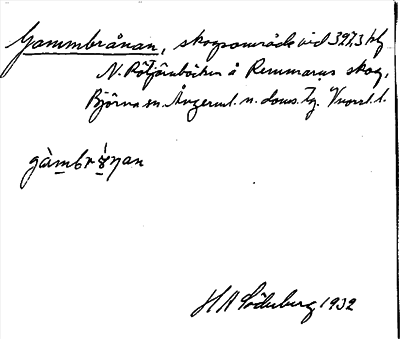 Gammbrånan, skogsområde vid 397,3 vid
N. Rötjärnbäcken å Remmarns skog,
Björna sn. Ångerml. n. doms. tg. Vnorrl. l.
gàmbrɤ́nan
H A Söderberg 1932